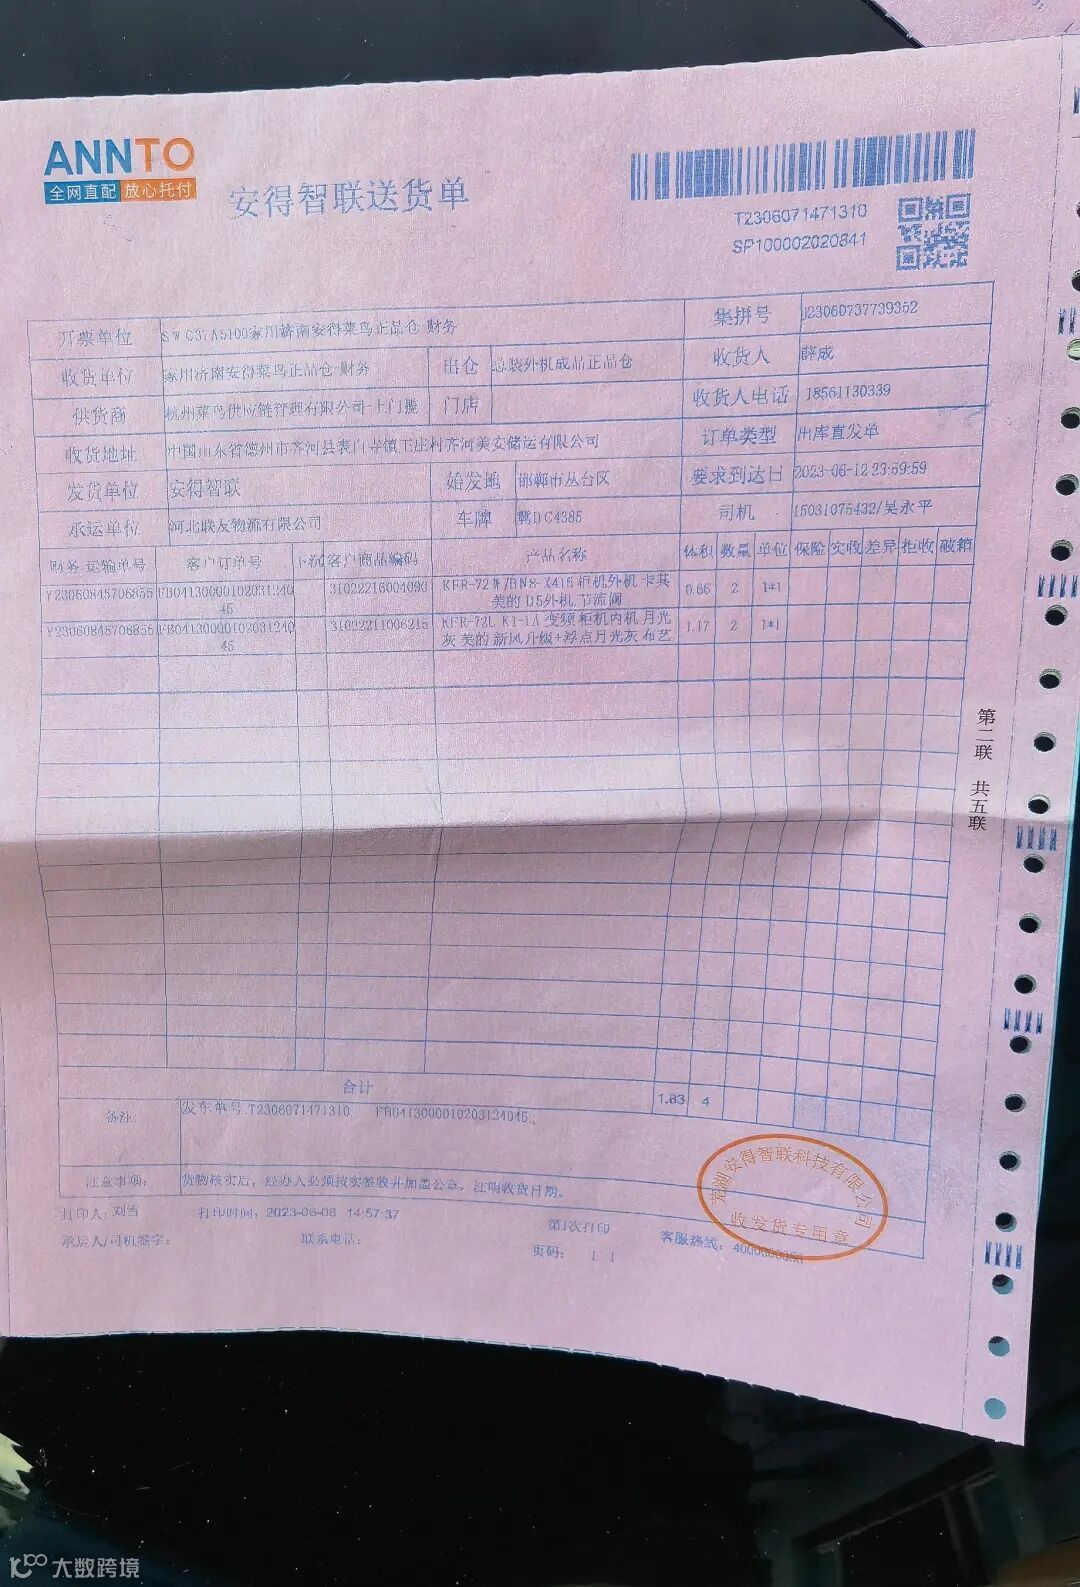 ANNTO
全网直配 放心托付
安得智联送货单
T2306071471310
SP100002020841
开票单位 家用济南安得菜鸟正品仓-财务 集拼号 J23060737739352
收货单位 家用济南安得菜鸟正品仓-财务 出仓 总装外机成品正品仓 收货人 薛成
供货商 杭州菜鸟供应链管理有限公司-上门揽 门店 收货人电话 18561130339
收货地址 中国山东省德州市齐河县表白寺镇王庄村齐河美安储运有限公司 订单类型 出库直发单
发货单位 安得智联 始发地 邯郸市丛台区 要求到达日 2023-06-12 23:59:59
承运单位 河北联友物流有限公司 车牌 冀DC4385 司机 15031075432/吴永平
财务运输单号 客户订单号 下沉客户商品编码 产品名称 体积 数量 单位 保险 实收 差异 拒收 破箱
Y23060845706855 FB04130000102031240 31022216004090 KFR-72W/BN8-X416 柜机外机 卡其 0.66 2 1*1
45 美的 D5外机 节流阀
Y23060845706856 FB04130000102031240 31022211006215 变频 柜机内机 月光 1.17 2 1*1
45 灰 美的 新风升级+浮点月光灰 布艺
第二联 共五联
合计 1.83 4
备注: 发车单号:T2306071471310 FB0413000010203124045;
注意事项: 货物核实后，经办人必须按实签收并加盖公章，注明收货日期。
打印人:刘雪 打印时间: 2023-06-08 14:57:37 第1次打印
承运人/司机签字: 联系电话: 页码: 1 1 客服热线:
芜湖安得智联科技有限公司
收发货专用章
大数跨境